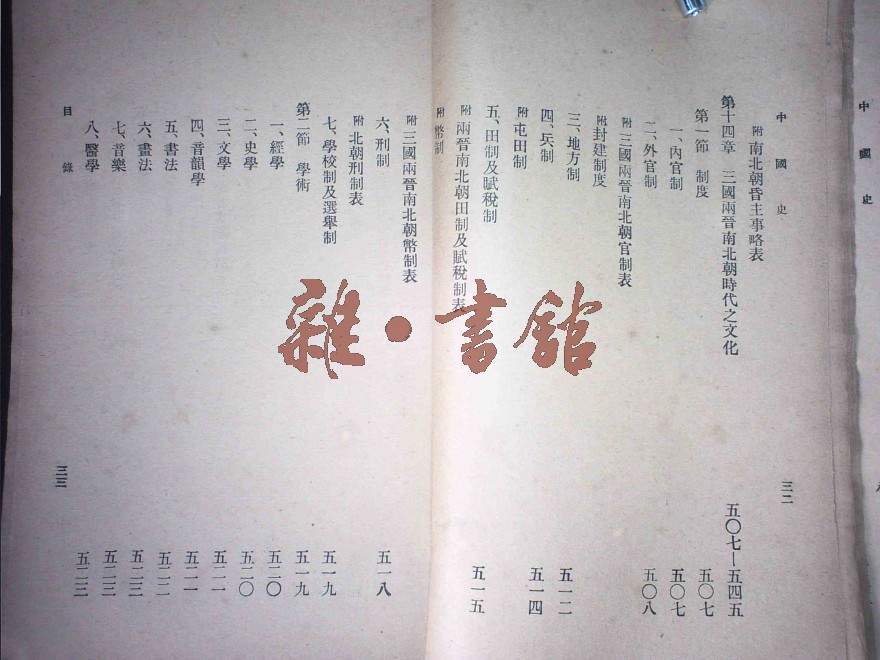 中國史
三二
附 南北朝昏主事略表
第十四章 三國兩晉南北朝時代之文化 五〇七—五四五
第一節 制度 五〇七
一、內官制 五〇七
二、外官制 五〇八
附 三國兩晉南北朝官制表
附 封建制度
三、地方制 五一二
四、兵制 五一四
附 屯田制
五、田制及賦稅制 五一五
附 兩晉南北朝田制及賦稅制表
附 幣制
附 三國兩晉南北朝幣制表
六、刑制 五一八
附 北朝刑制表
七、學校制及選舉制 五一九
第二節 學術 五一九
一、經學 五二〇
二、史學 五二〇
三、文學 五二一
四、音韻學 五二一
五、書法 五二二
六、畫法 五二三
七、音樂 五二三
八、醫學 五二三
目錄
三三
中國史
雜·書館